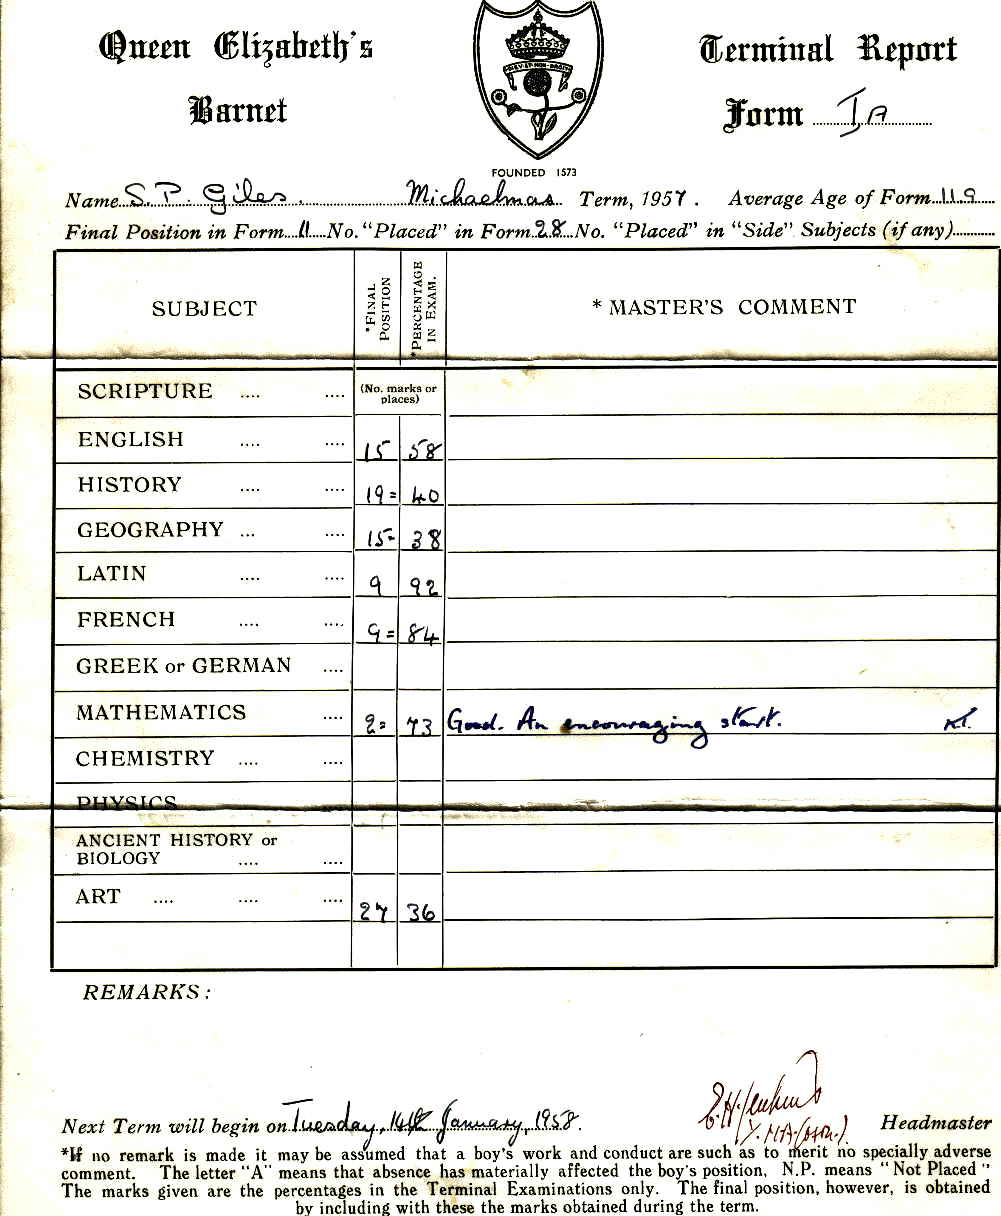 Queen Elizabeth's Terminal Report
Barnet Form IA
DIEU ET MON DROIT
FOUNDED 1573
Name S. P. Giles. Michaelmas Term, 1957. Average Age of Form 11.9
Final Position in Form 11 No. "Placed" in Form 28 No. "Placed" in "Side" Subjects (if any)
SUBJECT *FINAL POSITION *PERCENTAGE IN EXAM. * MASTER'S COMMENT
SCRIPTURE .... .... (No. marks or places)
ENGLISH .... .... 15 58
HISTORY .... .... 19= 40
GEOGRAPHY ... .... 15= 38
LATIN .... .... 9 92
FRENCH .... .... 9= 84
GREEK or GERMAN ....
MATHEMATICS .... 2= 73 Good. An encouraging start.
CHEMISTRY .... ....
PHYSICS
ANCIENT HISTORY or
BIOLOGY .... ....
ART .... .... .... 27 36
REMARKS:
Next Term will begin on Tuesday, 14th January, 1958. E.H. Jenkins Headmaster
*If no remark is made it may be assumed that a boy's work and conduct are such as to merit no specially adverse
comment. The letter "A" means that absence has materially affected the boy's position, N.P. means "Not Placed"
The marks given are the percentages in the Terminal Examinations only. The final position, however, is obtained
by including with these the marks obtained during the term.